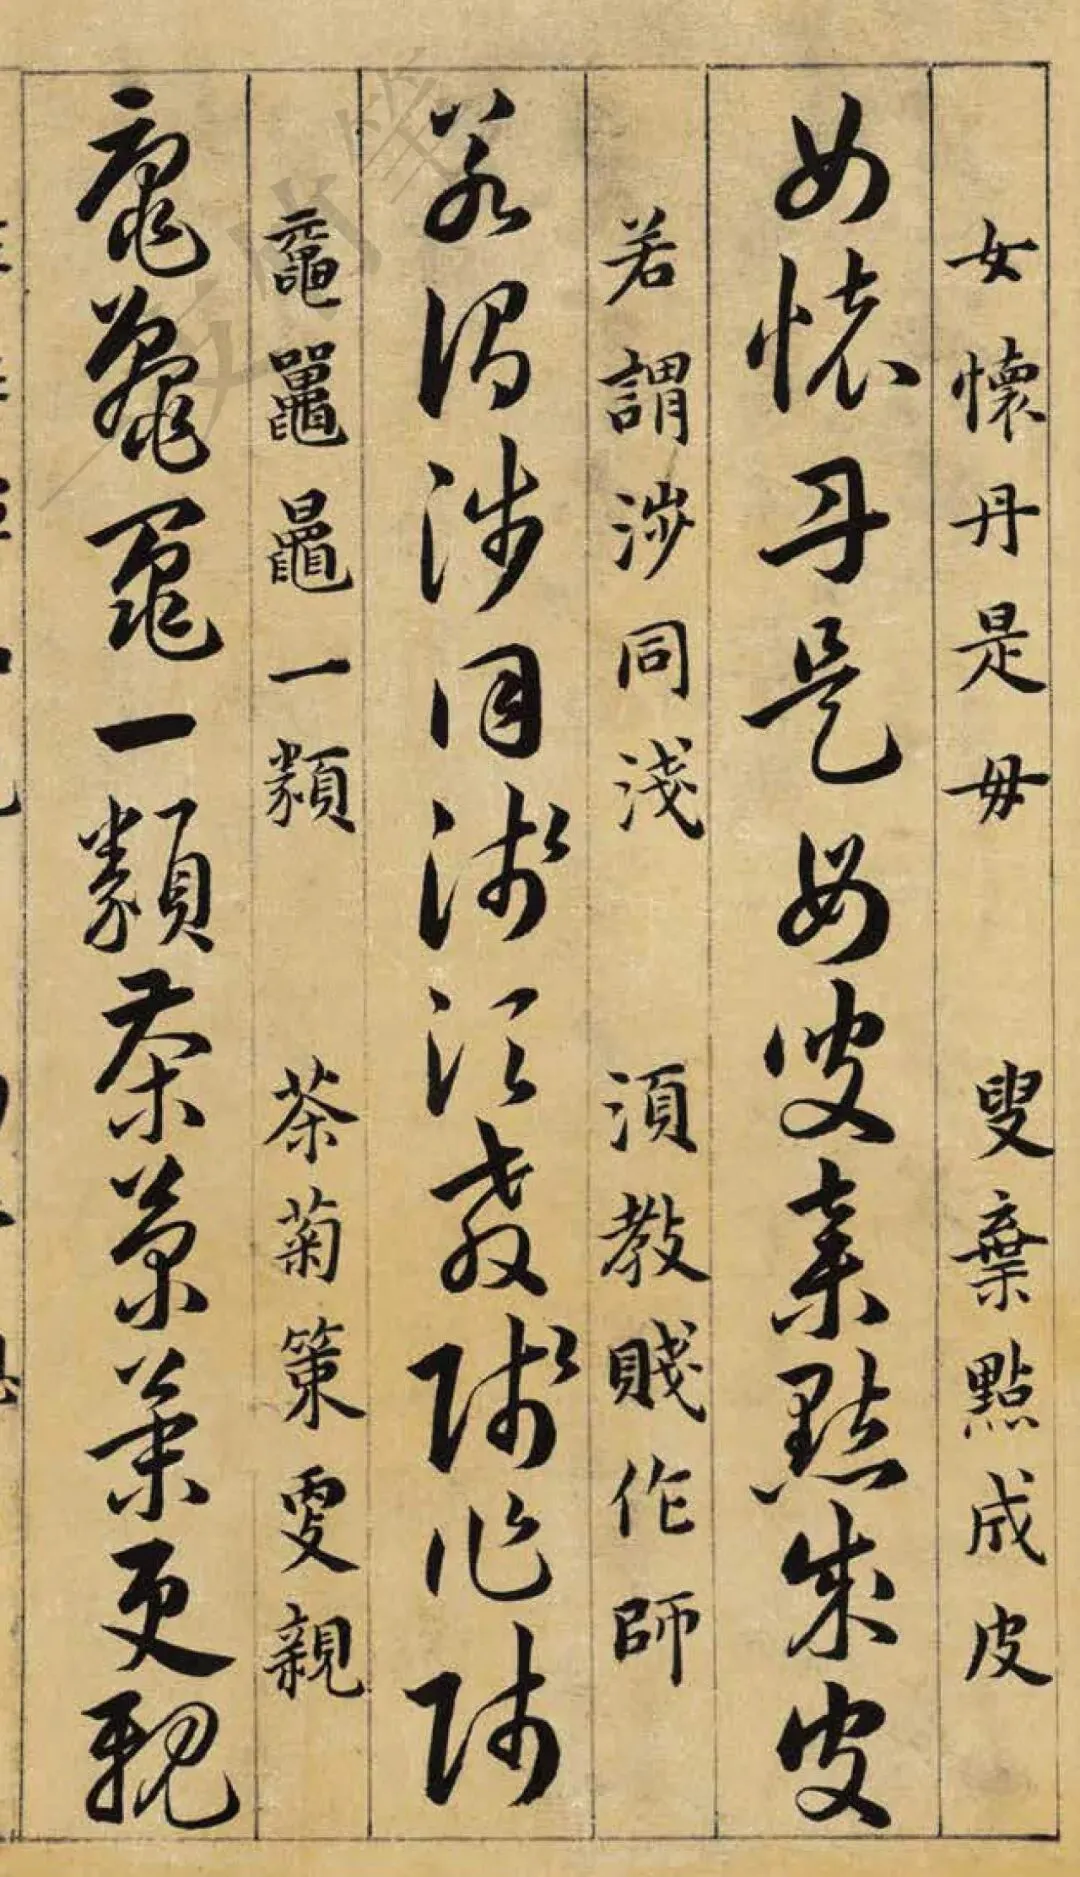 女懷丹是毋 叟棄點成皮
女懷丹是毋叟棄點成皮
若謂渉同淺 湏教賤作師
若謂渉同淺湏教賤作師
黿鼉鼂一類 茶菊策更親
黿鼉鼂一類茶菊策更親